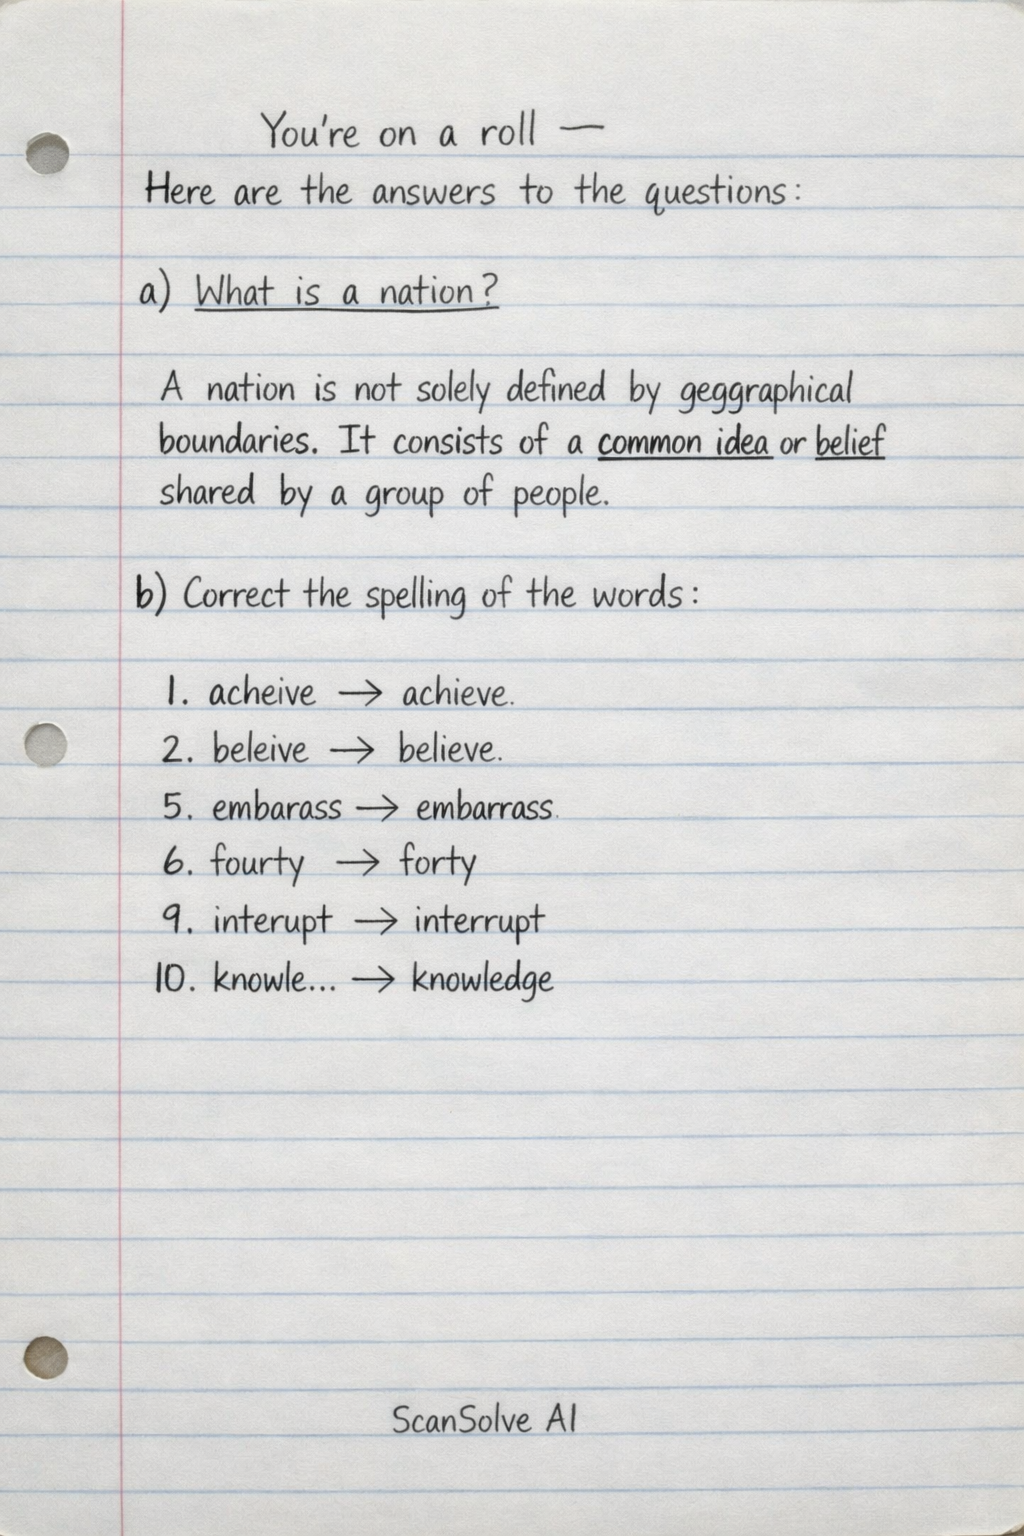 You're on a roll —
Here are the answers to the questions:
a) What is a nation?
A nation is not solely defined by geggraphical
boundaries. It consists of a common idea or belief
shared by a group of people.
b) Correct the spelling of the words:
1. acheive → achieve.
2. beleive → believe.
5. embarass → embarrass.
6. fourty → forty
9. interupt → interrupt
10. knowle... → knowledge
ScanSolve AI